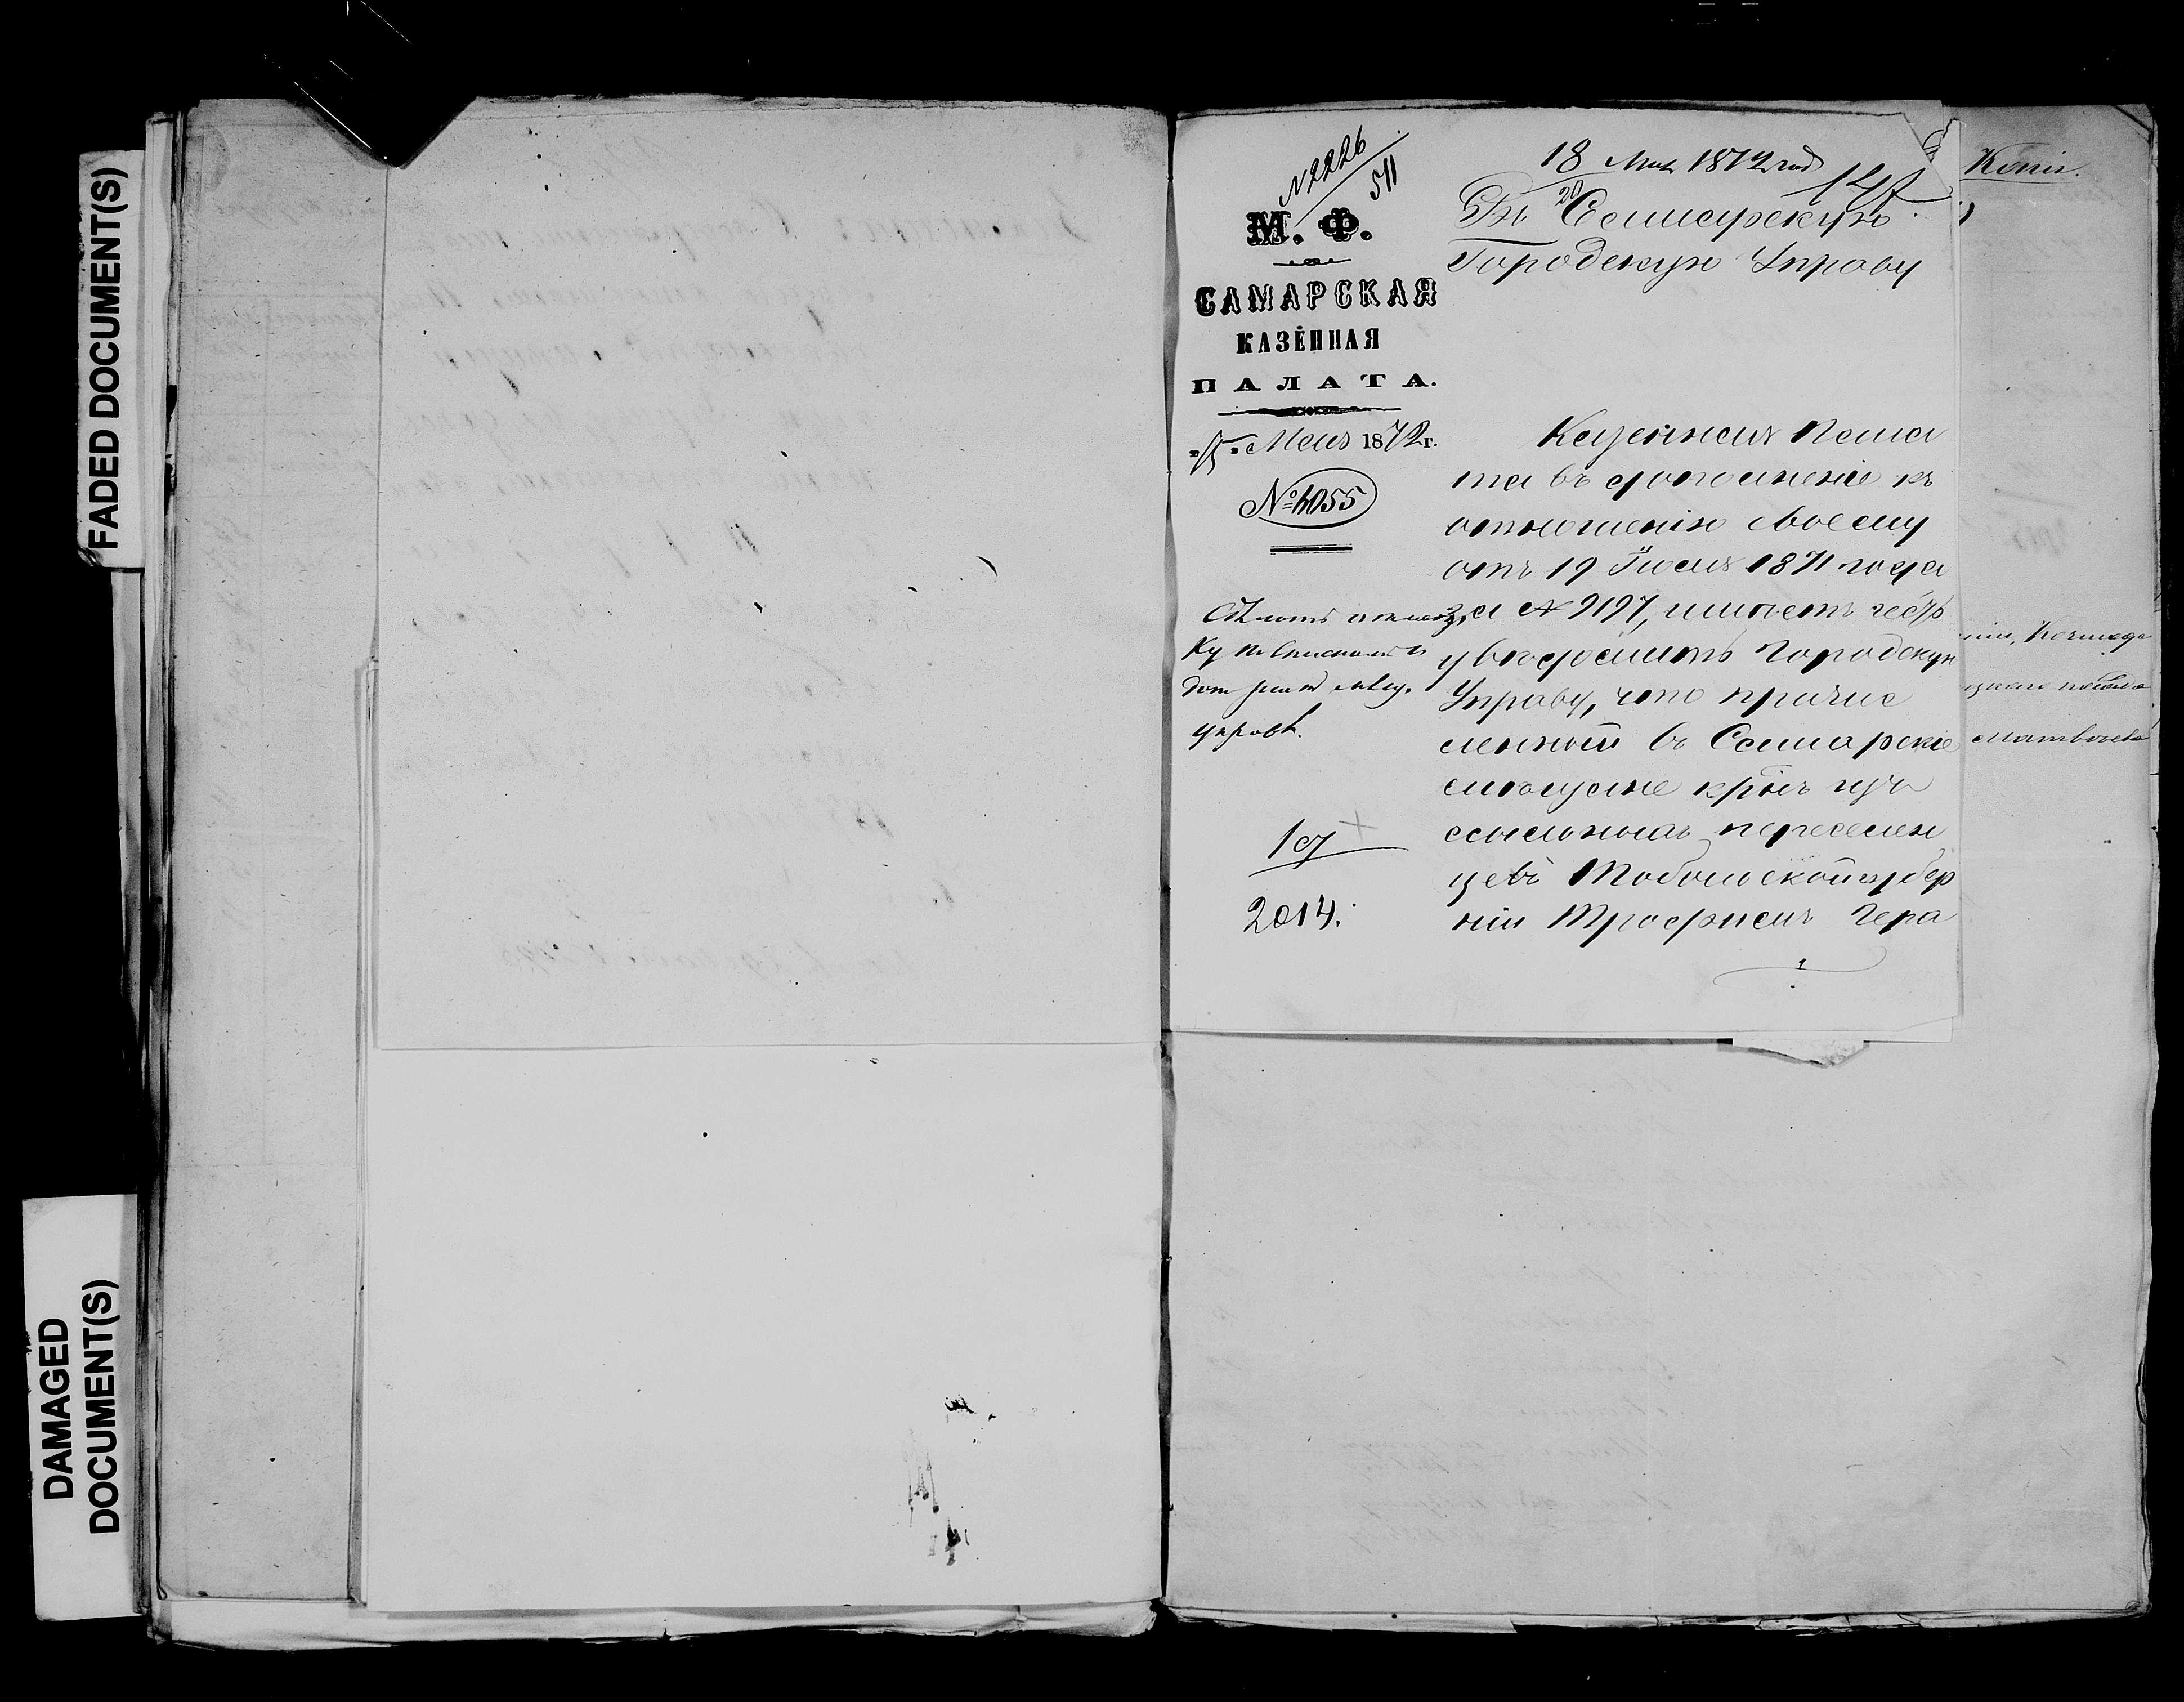 FADED DOCUMENT(S)
DAMAGED
DOCUMENT(S)
№ 2226
511
М. Ф.
САМАРСКАЯ
КАЗЁННАЯ
ПАЛАТА.
Мая 1872 г.
№ 4055
управѣ.
10
2014.
18 Мая 1872 год
Въ Самарскую
Городскую Управу
Казенная Пала
та въ дополненіе къ
отношенію своему
отъ 19 Іюля 1871 года
за № 9197, имѣетъ честь
увѣдомить Городскую
Управу, что причис
ленный въ Самарскіе
мѣщане изъ
ссыльныхъ переселен
цевъ Тобольской губер
ніи Трофимъ Гера
Копія.
Матвѣева